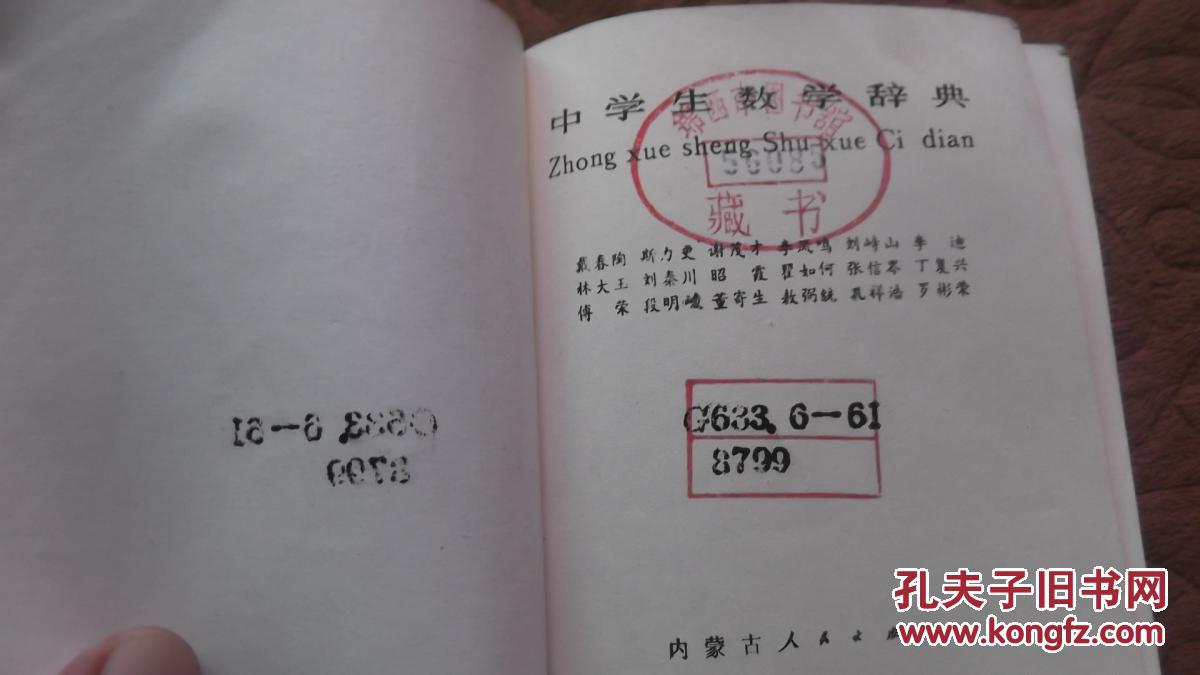 中学生数学辞典
Zhong xue sheng Shu xue Ci dian
锦西市图书馆
藏书
戴春陶 斯力更 谢茂才 李凤鸣 刘峰山 李迪
林大王 刘秦川 昭霞 翟如何 张信岑 丁复兴
傅荣 段明 董寄生 敖弼统 孔祥浩 罗彬荣
G633.6-61
8799
内蒙古人民出版
孔夫子旧书网
www.kongfz.com